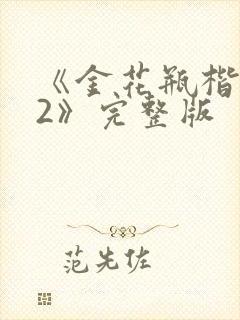 《金花瓶楷
2》完整版
范先佐